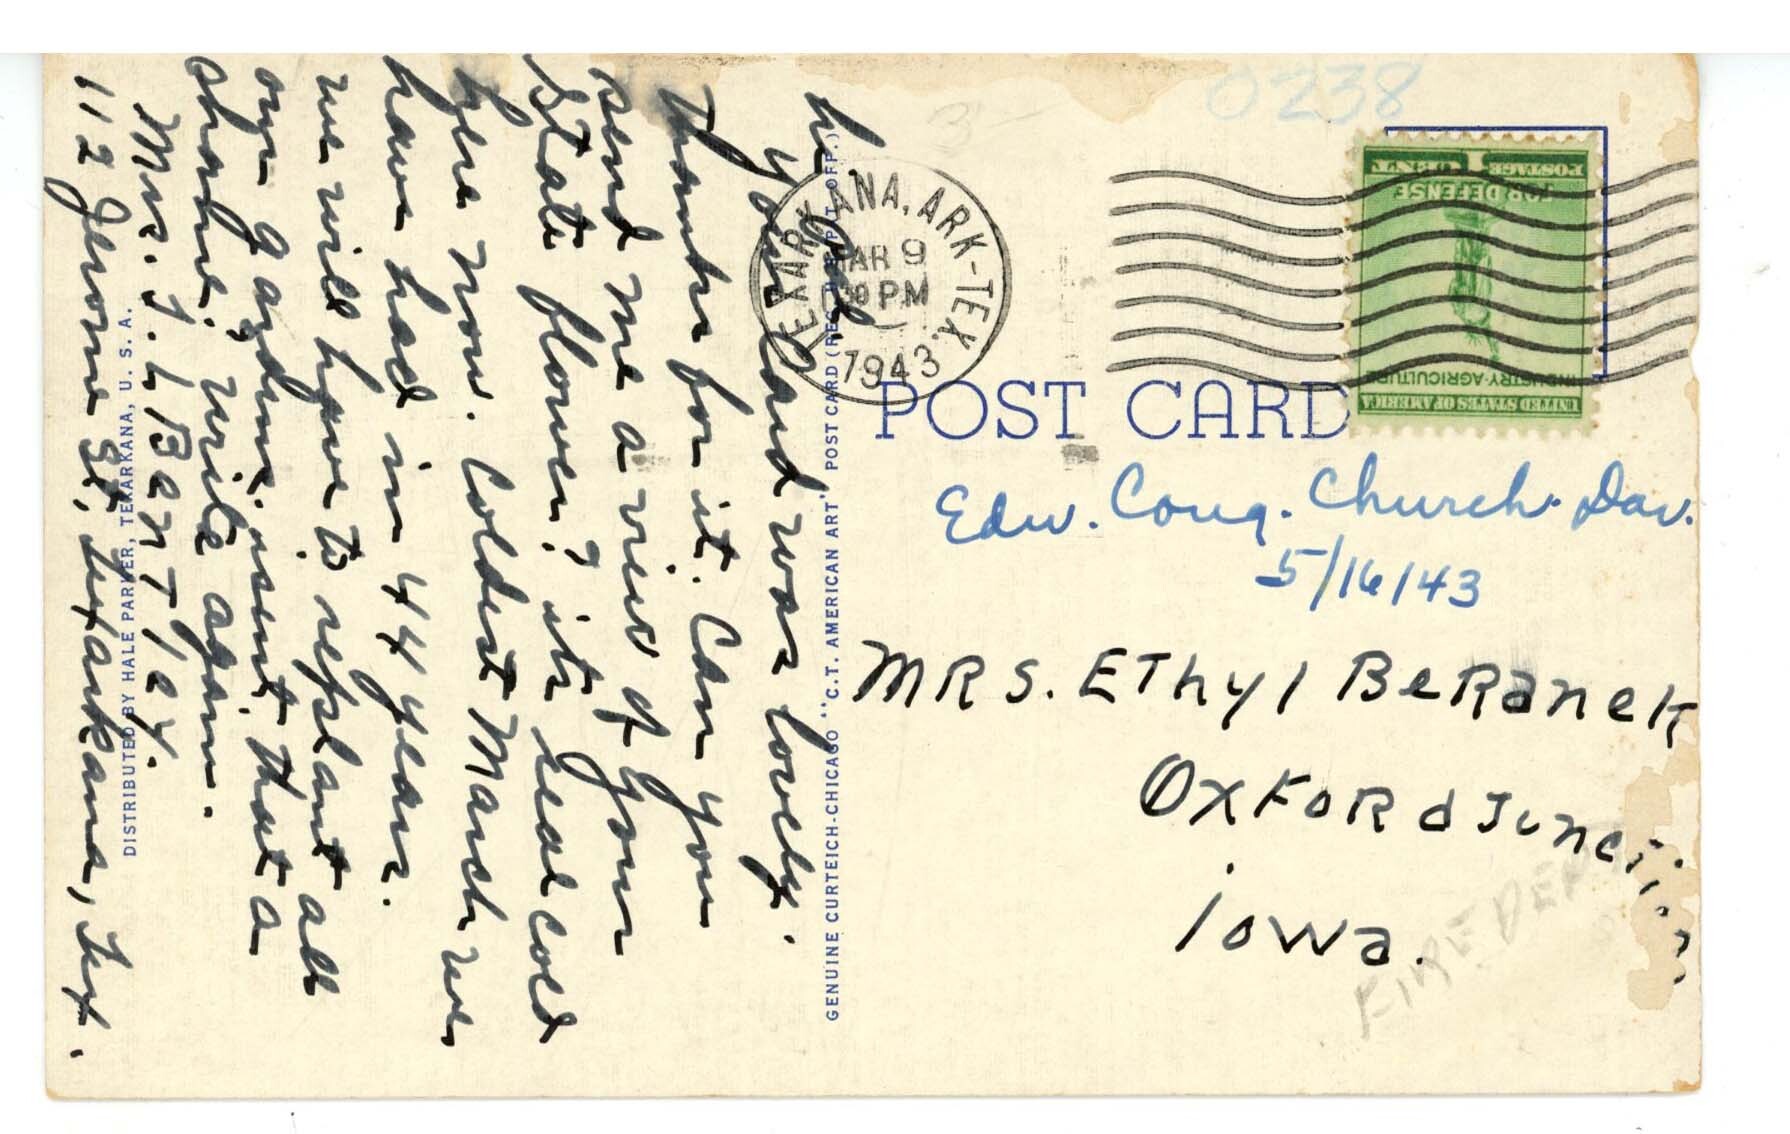 0238
3-
TEXARKANA, ARK-TEX.
MAR 9
30 PM
1943
1 CENT 1
POSTAGE
FOR DEFENSE
INDUSTRY-AGRICULTURE
UNITED STATES OF AMERICA
POST CARD
Edw. Cong. Church. Dav.
5/16/43
MRS. EThyl BeRanek
OxFord Junction
Iowa.
FIRE DEPT
Hi Pal,
your card was lovely.
Thanks for it. Can you
send me a view of your
State flower? its real cold
here now. Coldest March we
have had in 44 years.
we will have to replant all
our gardens. isent that a
shame. write again.
Mrs. J. L. Bantley.
112 Jerome St, Texarkana, Tex.
DISTRIBUTED BY HALE PARKER, TEXARKANA, U. S. A.
GENUINE CURTEICH-CHICAGO "C.T. AMERICAN ART" POST CARD (REG. U.S. PAT. OFF.)